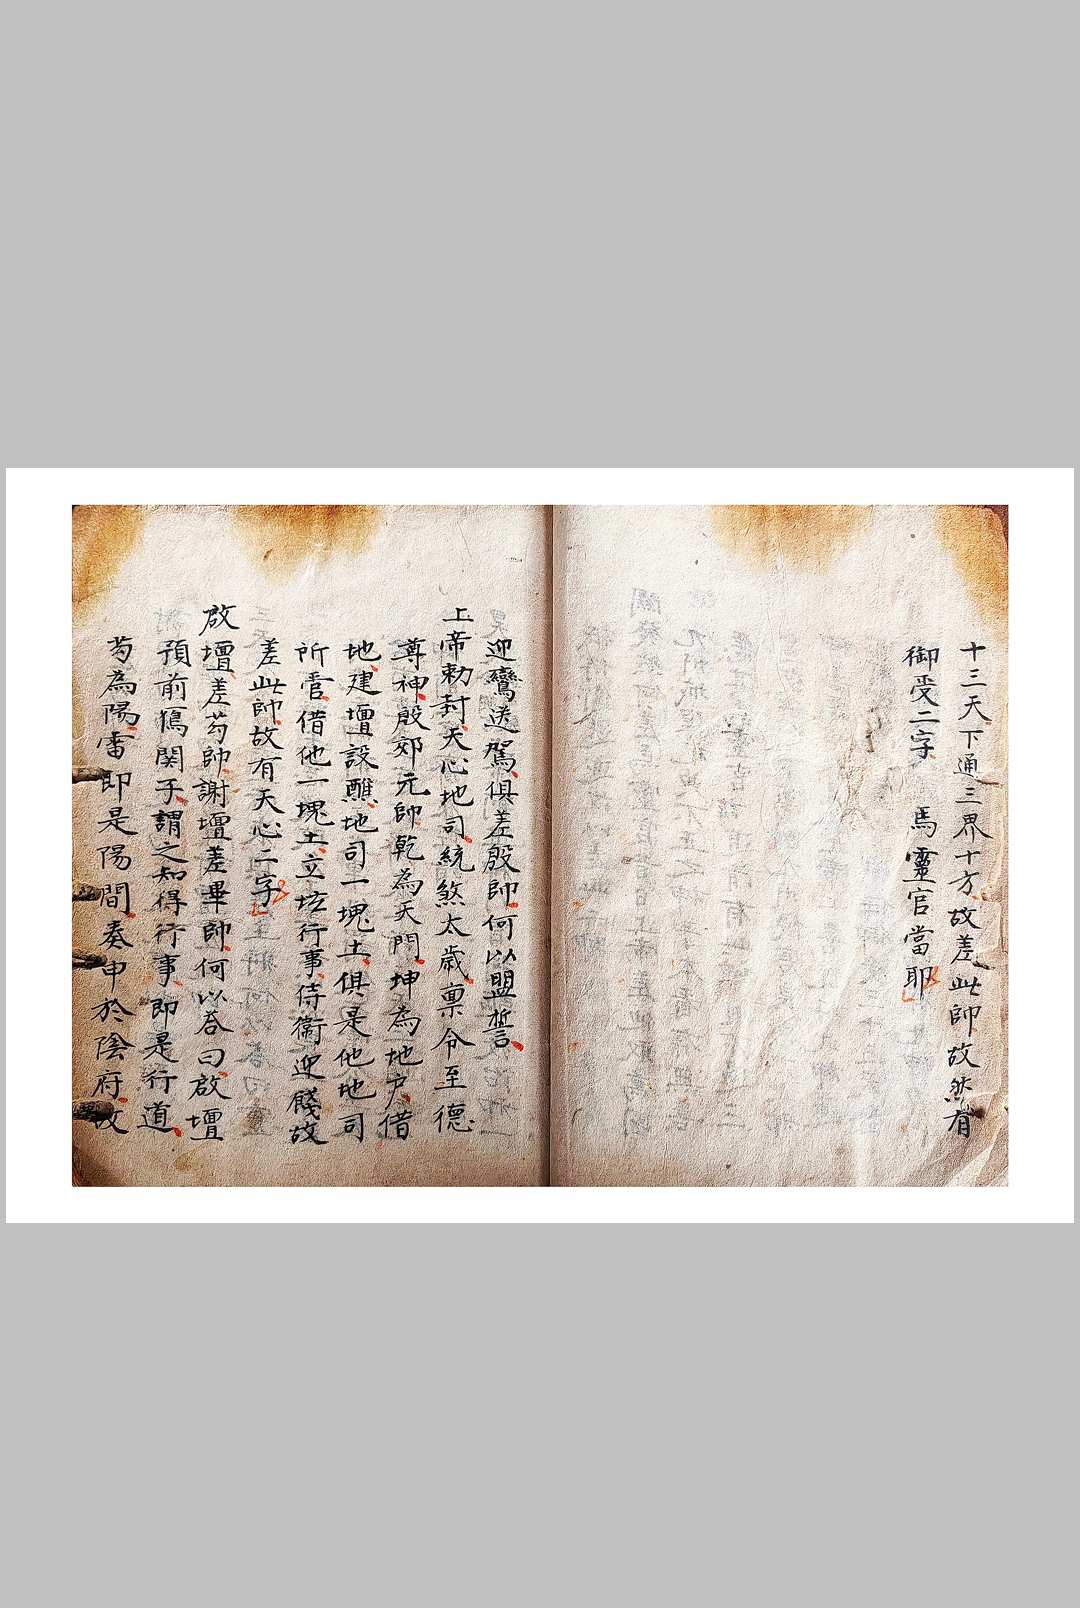 十三天下通三界十方故差此帥故然有
御受二字 馬靈官當耶
迎鸞送駕俱差殷帥何以盟誓
上帝勅封天心地司統煞太歲稟令至德
尊神殷郊元帥乾為天門坤為地户借
地建壇設醮地司一塊土俱是他地司
所管借他一塊土立坛行事侍衛迎餞故
差此帥故有天心二字
啟壇差芶帥謝壇差畢帥何以答曰啟壇
預前關乎謂之知得行事即是行道
芶為陽雷即是陽間奏申於陰府故